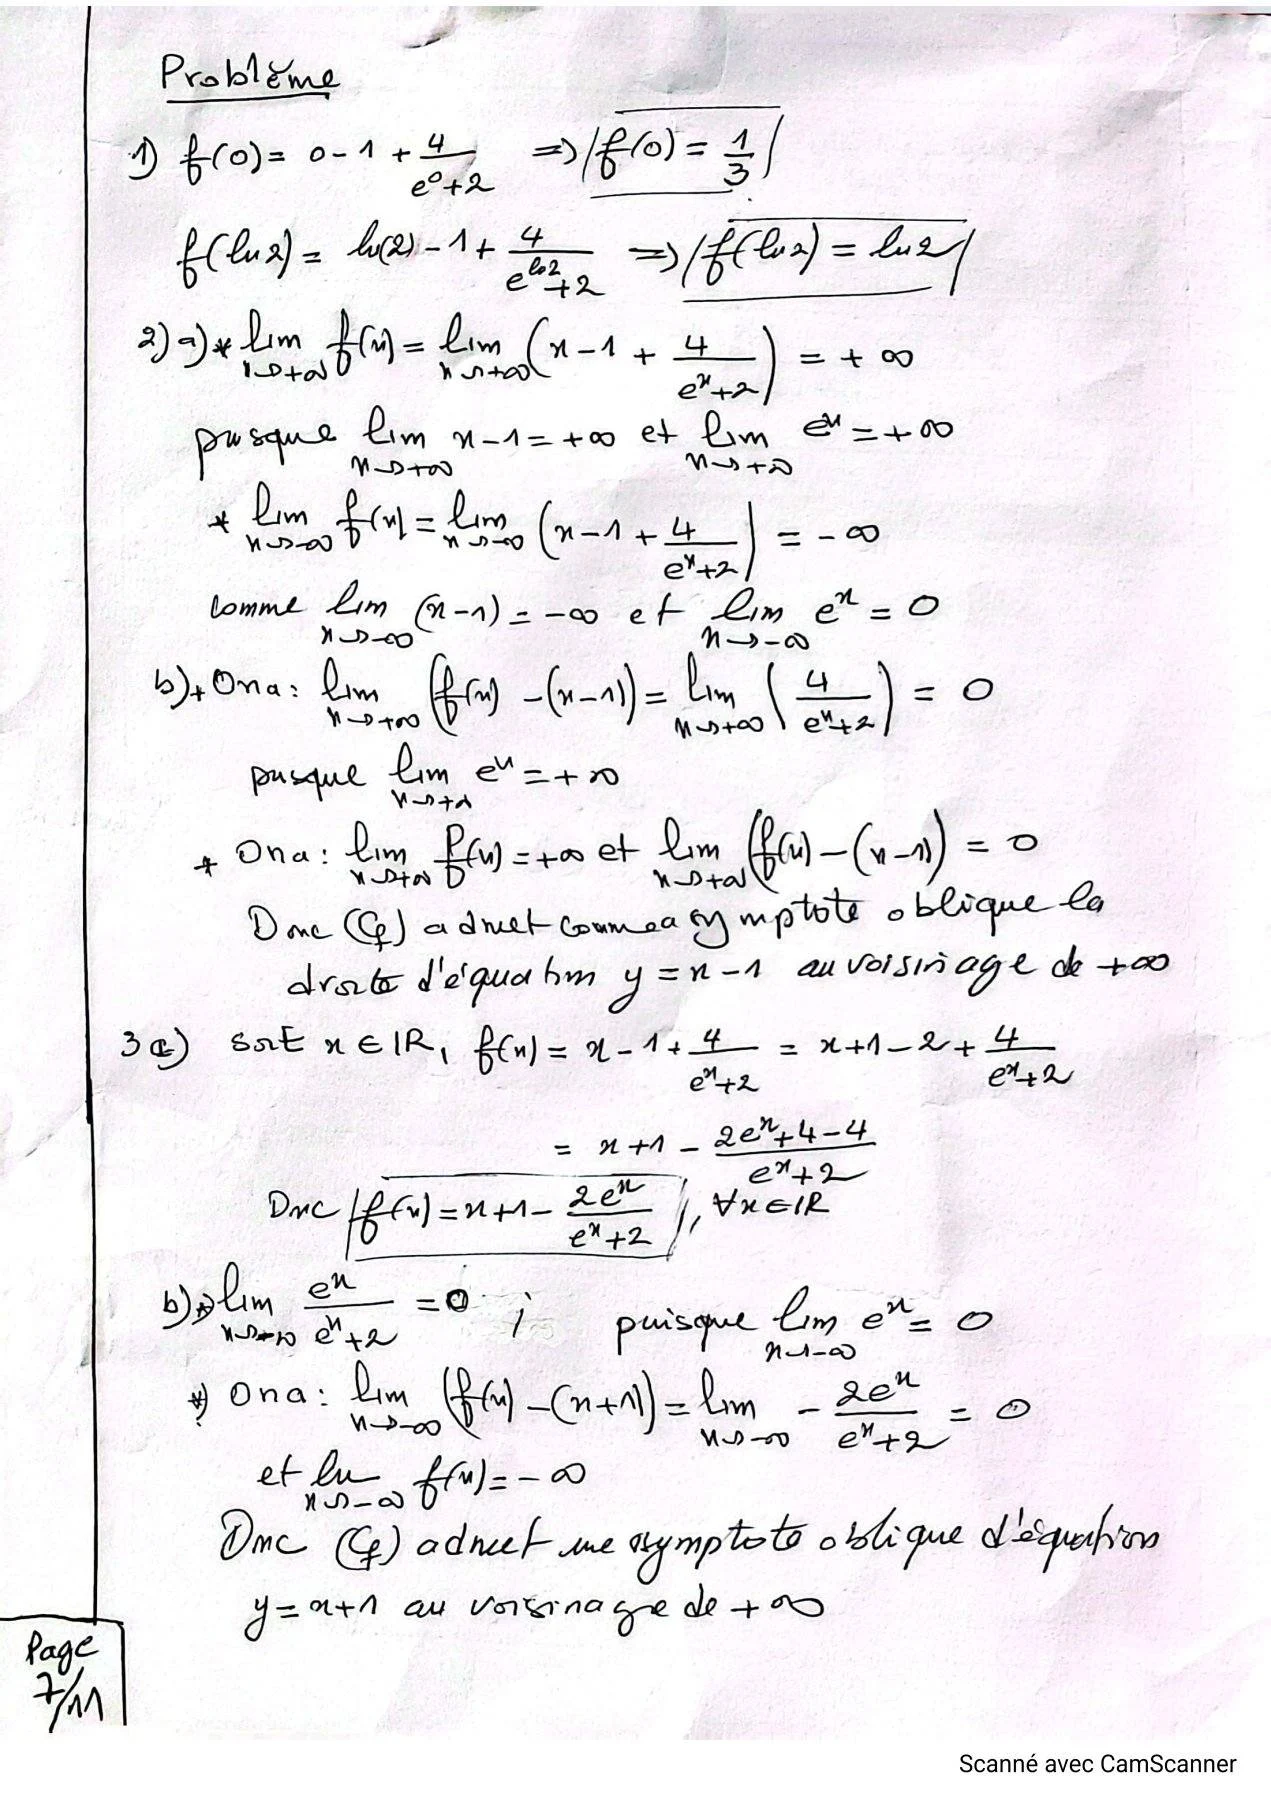 Problème
1) f(0) = 0 - 1 + 4/(e⁰+2) ⇒ f(0) = 1/3
f(ln2) = ln(2) - 1 + 4/(e^ln2 + 2) ⇒ f(ln2) = ln2
2) a) * lim x→+∞ f(x) = lim x→+∞ (x - 1 + 4/(eˣ+2)) = +∞
pusque lim x→+∞ x-1 = +∞ et lim x→+∞ eˣ = +∞
* lim x→-∞ f(x) = lim x→-∞ (x - 1 + 4/(eˣ+2)) = -∞
comme lim x→-∞ (x-1) = -∞ et lim x→-∞ eˣ = 0
b) + Ona : lim x→+∞ (f(x) - (x-1)) = lim x→+∞ (4/(eˣ+2)) = 0
pusque lim x→+∞ eˣ = +∞
* Ona : lim x→+∞ f(x) = +∞ et lim x→+∞ (f(x) - (x-1)) = 0
Donc (Cf) admet comme asymptote oblique la
droite d'équation y = x-1 au voisinage de +∞
3 a) soit x ∈ IR, f(x) = x - 1 + 4/(eˣ+2) = x+1-2 + 4/(eˣ+2)
= x+1 - (2eˣ+4-4)/(eˣ+2)
Donc f(x) = x+1 - 2eˣ/(eˣ+2), ∀x∈IR
b) * lim x→-∞ eˣ/(eˣ+2) = 0 ; puisque lim x→-∞ eˣ = 0
* Ona : lim x→-∞ (f(x) - (x+1)) = lim x→-∞ - 2eˣ/(eˣ+2) = 0
et lim x→-∞ f(x) = -∞
Donc (Cf) admet une asymptote oblique d'équation
y = x+1 au voisinage de +∞
Page
7/11
Scanné avec CamScanner